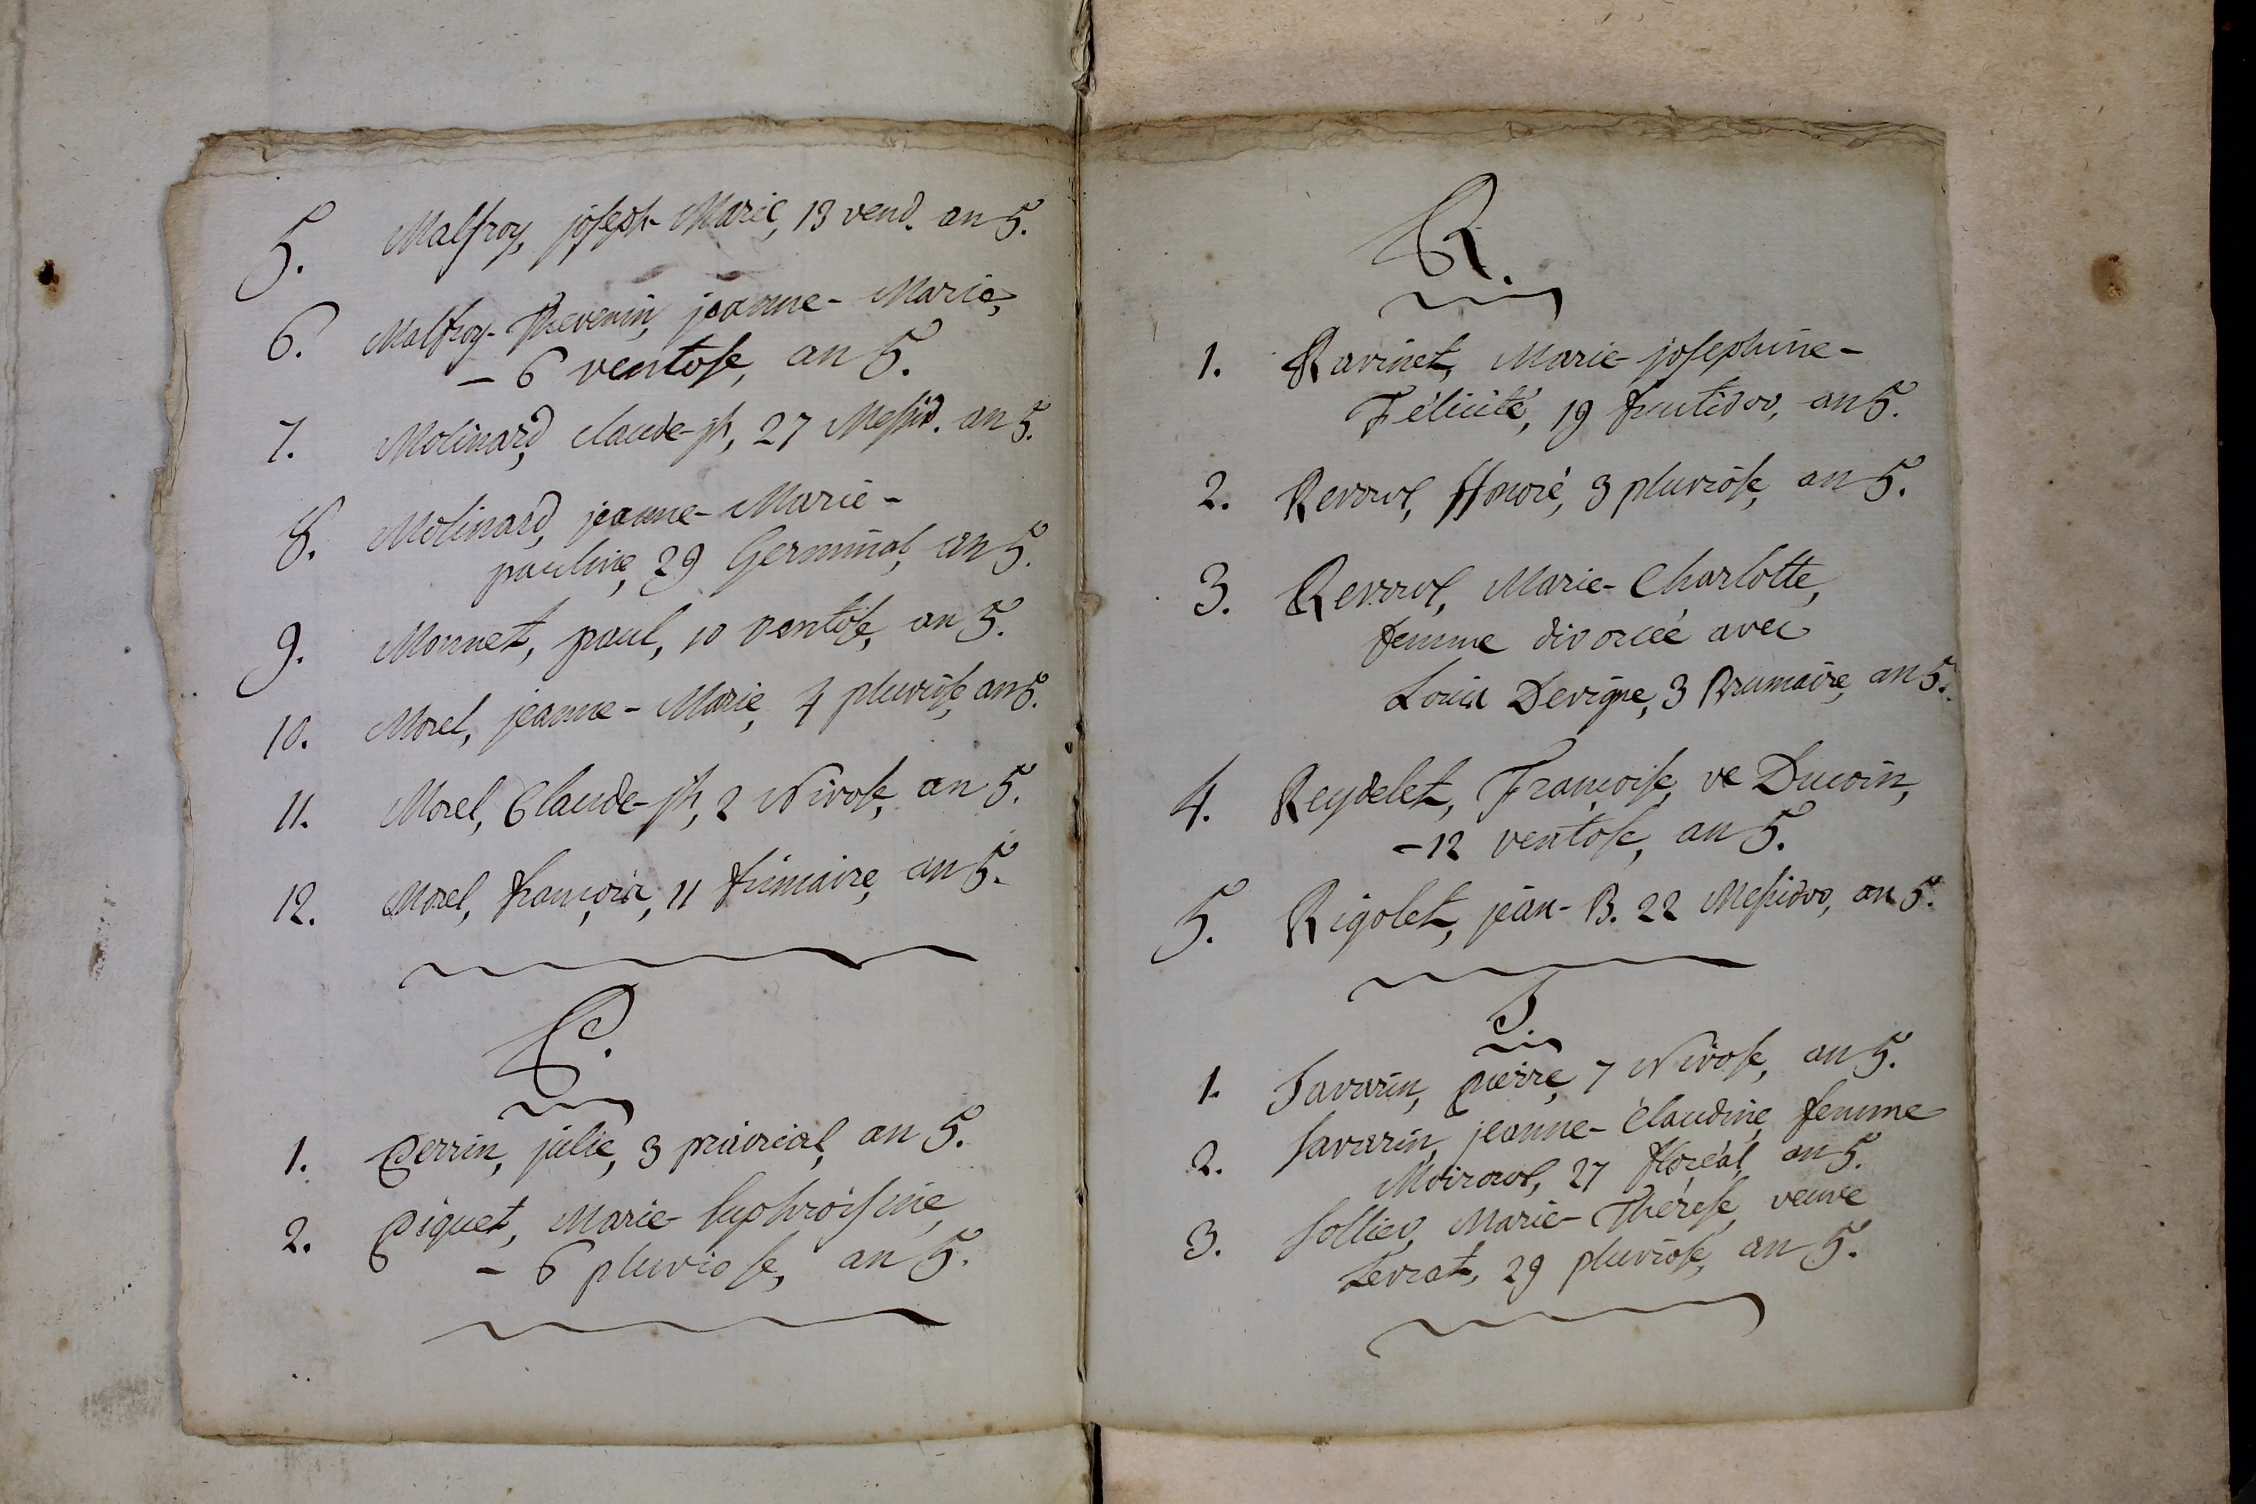 5. Malfroy, joseph-Marie, 13 vend. an 5.
6. Malfroy-Thevenin, jeanne-Marie,
- 6 ventose, an 5.
7. Molinard, claude-jh, 27 Messid. an 5.
8. Molinard, jeanne-Marie-
pauline, 29 Germinal, an 5.
9. Monnet, paul, 10 ventose, an 5.
10. Morel, jeanne-Marie, 4 pluviose, an 5.
11. Morel, Claude-jh, 2 Nivose, an 5.
12. Morel, françois, 11 frimaire, an 5.
P.
1. Perrin, julie, 3 prairial, an 5.
2. Piquet, Marie-Euphroisine,
- 6 pluviose, an 5.
R.
1. Ravinet, Marie-josephine-
Félicité, 19 fructidor, an 5.
2. Revrol, Honoré, 3 pluviose, an 5.
3. Revrol, Marie-Charlotte,
femme divorcée avec
Louis Devigne, 3 Brumaire, an 5.
4. Reydelet, Françoise, ve Ducoin,
- 12 ventose, an 5.
5. Rigolet, jean-B. 22 Messidor, an 5.
S.
1. Savarin, Pierre, 7 Nivose, an 5.
2. Savarin, jeanne-Claudine, femme
Moiroud, 27 floréal, an 5.
3. Sollier, Marie-Thérese, veuve
Levrat, 29 pluviose, an 5.